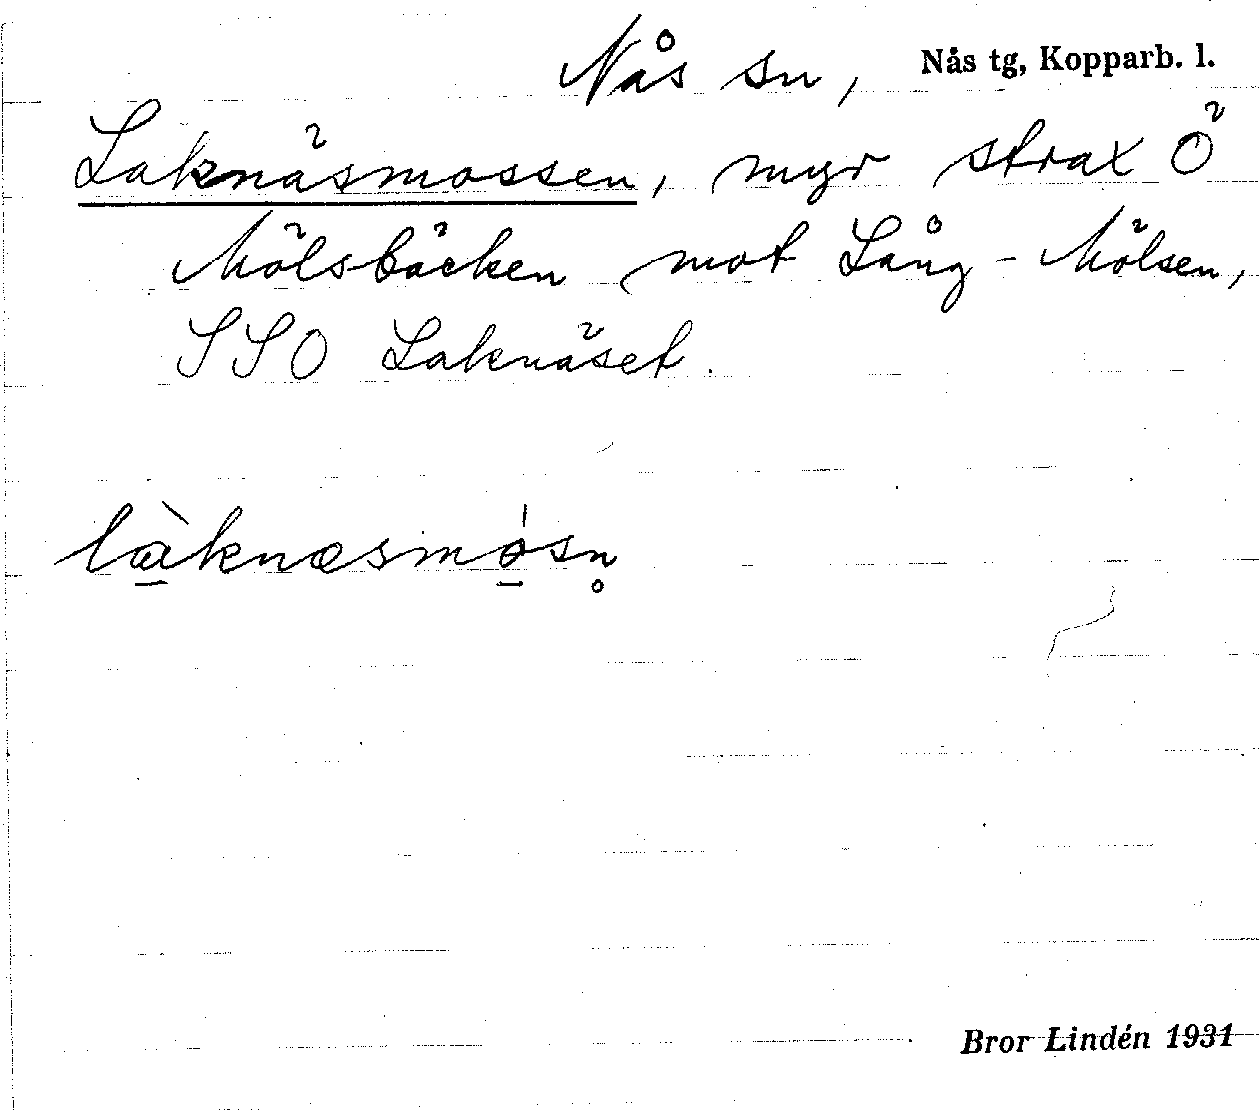 Nås sn, Nås tg, Kopparb. l.
Laknäsmossen, myr strax Ö
Mölsbäcken mot Lång-Mölsen,
SSO Laknäset.
là̱knæsmǿ̱sn̥
Bror Lindén 1931